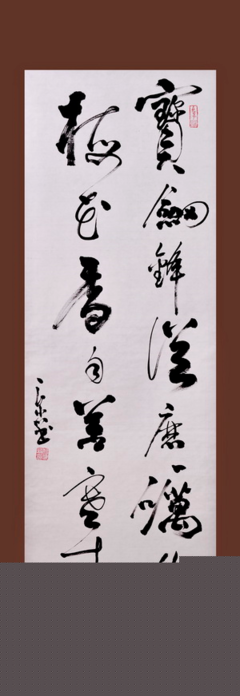 寶劍鋒從磨礪
梅花香自苦寒